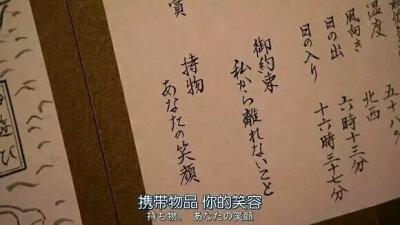 温度 五十八%
風向き 北西
日の出 六時十三分
日の入り 十六時三十七分
御約束
私から離れないこと
持物
あなたの笑顔
賞
遊び
携带物品 你的笑容
持ち物。 あなたの笑顔